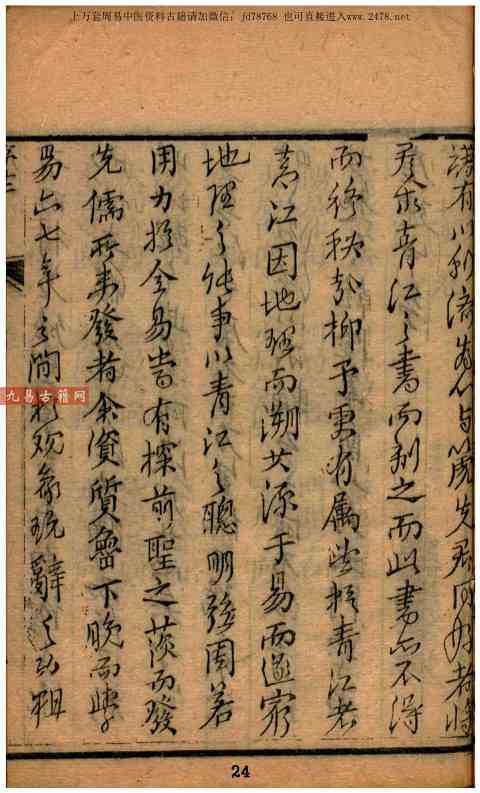 上万套周易中医资料古籍请加微信:jd78768 也可直接进入www.2478.net
谋有以利济
君求青江之书而刻之而此书亦不得
而终秘矣抑予更有属望於青江者
青江因地理而溯其源于易而遂穷
地理之能事以青江之聰明強固若
用力於全易當有探前聖之蘊而發
先儒所未發者余資質魯下晚而學
易六七年之間於观象玩辭之功粗
九易古籍网
24